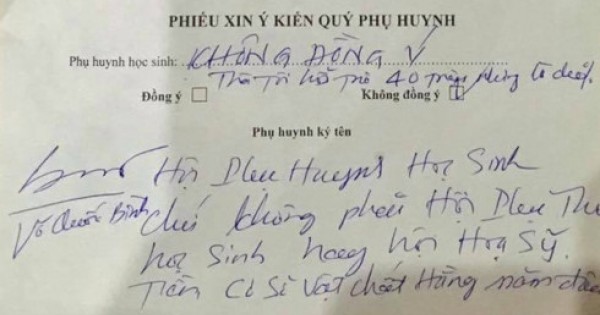 PHIẾU XIN Ý KIẾN QUÝ PHỤ HUYNH
Phụ huynh học sinh: KHÔNG ĐỒNG Ý
Thì Tôi hỗ trợ 40 triệu
Đồng ý Không đồng ý
Phụ huynh ký tên
Hội Phụ Huynh Học Sinh
Võ Quốc Bình
chứ không phải Hội Phụ Thu
học Sinh hay hội Hoạ Sỹ.
Tiền Cơ Sở Vật chất Hằng năm đâu